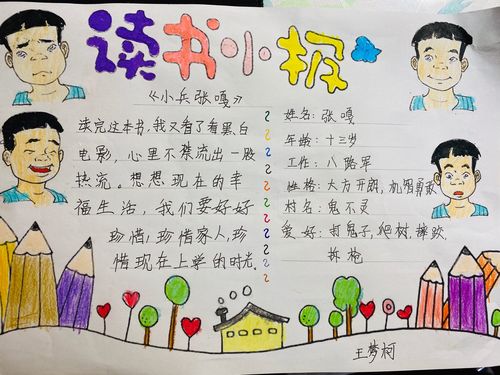 读书小报
《小兵张嘎》
读完这本书,我又看了看黑白
电影,心里不禁流出一股
热流。想想现在的幸
福生活,我们要好好
珍惜,珍惜家人,珍
惜现在上学的时光。
姓名:张嘎
年龄:十三岁
工作:八路军
性格:大方开朗,机智勇敢
村名:鬼不灵
爱好:打鬼子,爬树,摔跤,
拆枪
王梦柯